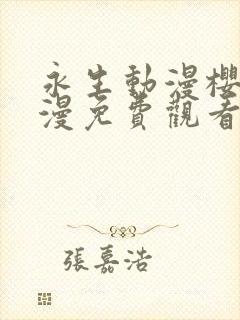 永生動漫櫻
漫免費觀看
張嘉浩